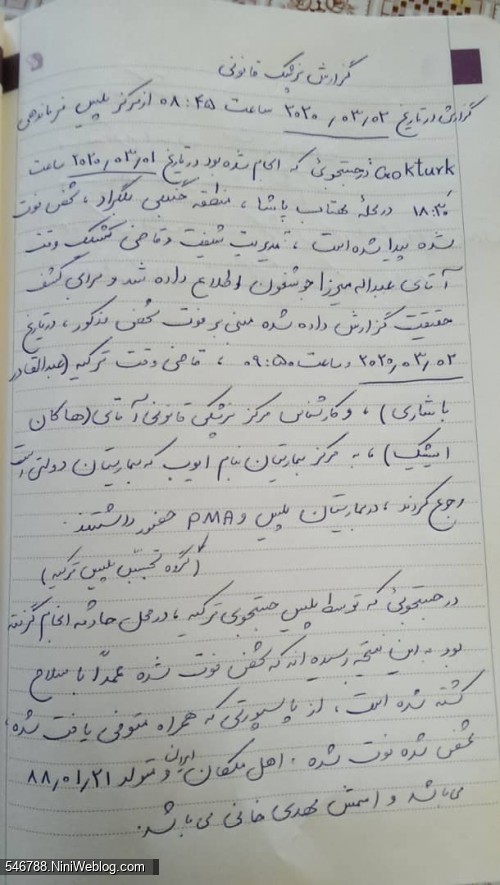 گزارش پزشک قانونی
گزارش در تاریخ ۲۰۲۰,۰۳,۰۲ ساعت ۰۸:۴۵ از مرکز پلیس فرماندهی
Gokturk در جستجوئی که انجام شده بود در تاریخ ۲۰۲۰,۰۳,۰۱ ساعت
۱۸:۳۰ در محلهٔ مهتاب پاشا ، منطقه جنبی بلگراد ، شخص فوت
شده پیدا شده است ، مدیریت شیفت و قاضی کشیک وقت
آقای عبداله میرزا جوشغون اطلاع داده شد و برای کشف
حقیقت گزارش داده شده مبنی بر فوت شخص مذکور ، در تاریخ
۲۰۲۰,۰۳,۰۲ و ساعت ۰۹:۵۰ ، قاضی وقت ترکیه (عبدالقادر
باشاری) ، و کارشناس مرکز پزشکی قانونی آقای (هاکان
ایشیک) ، به مرکز بیمارستان بنام ایوب که بیمارستان دولتی است
رجوع کردند ، در بیمارستان پلیس و PMA حضور داشتند
(گروه تجسس پلیس ترکیه)
در جستجوئی که توسط پلیس جستجوی ترکیه ، در محل حادثه انجام گرفته
بود به این نتیجه رسیده اند که شخص فوت شده عمداً با سلاح
کشته شده است ، از پاسپورتی که همراه متوفی یافت شده ،
شخص شده فوت شده . اهل ملکان ایران و متولد ۸۸,۰۱,۲۱
می باشد و اسمش مهدی خانی می باشد .
546788.NiniWeblog.com